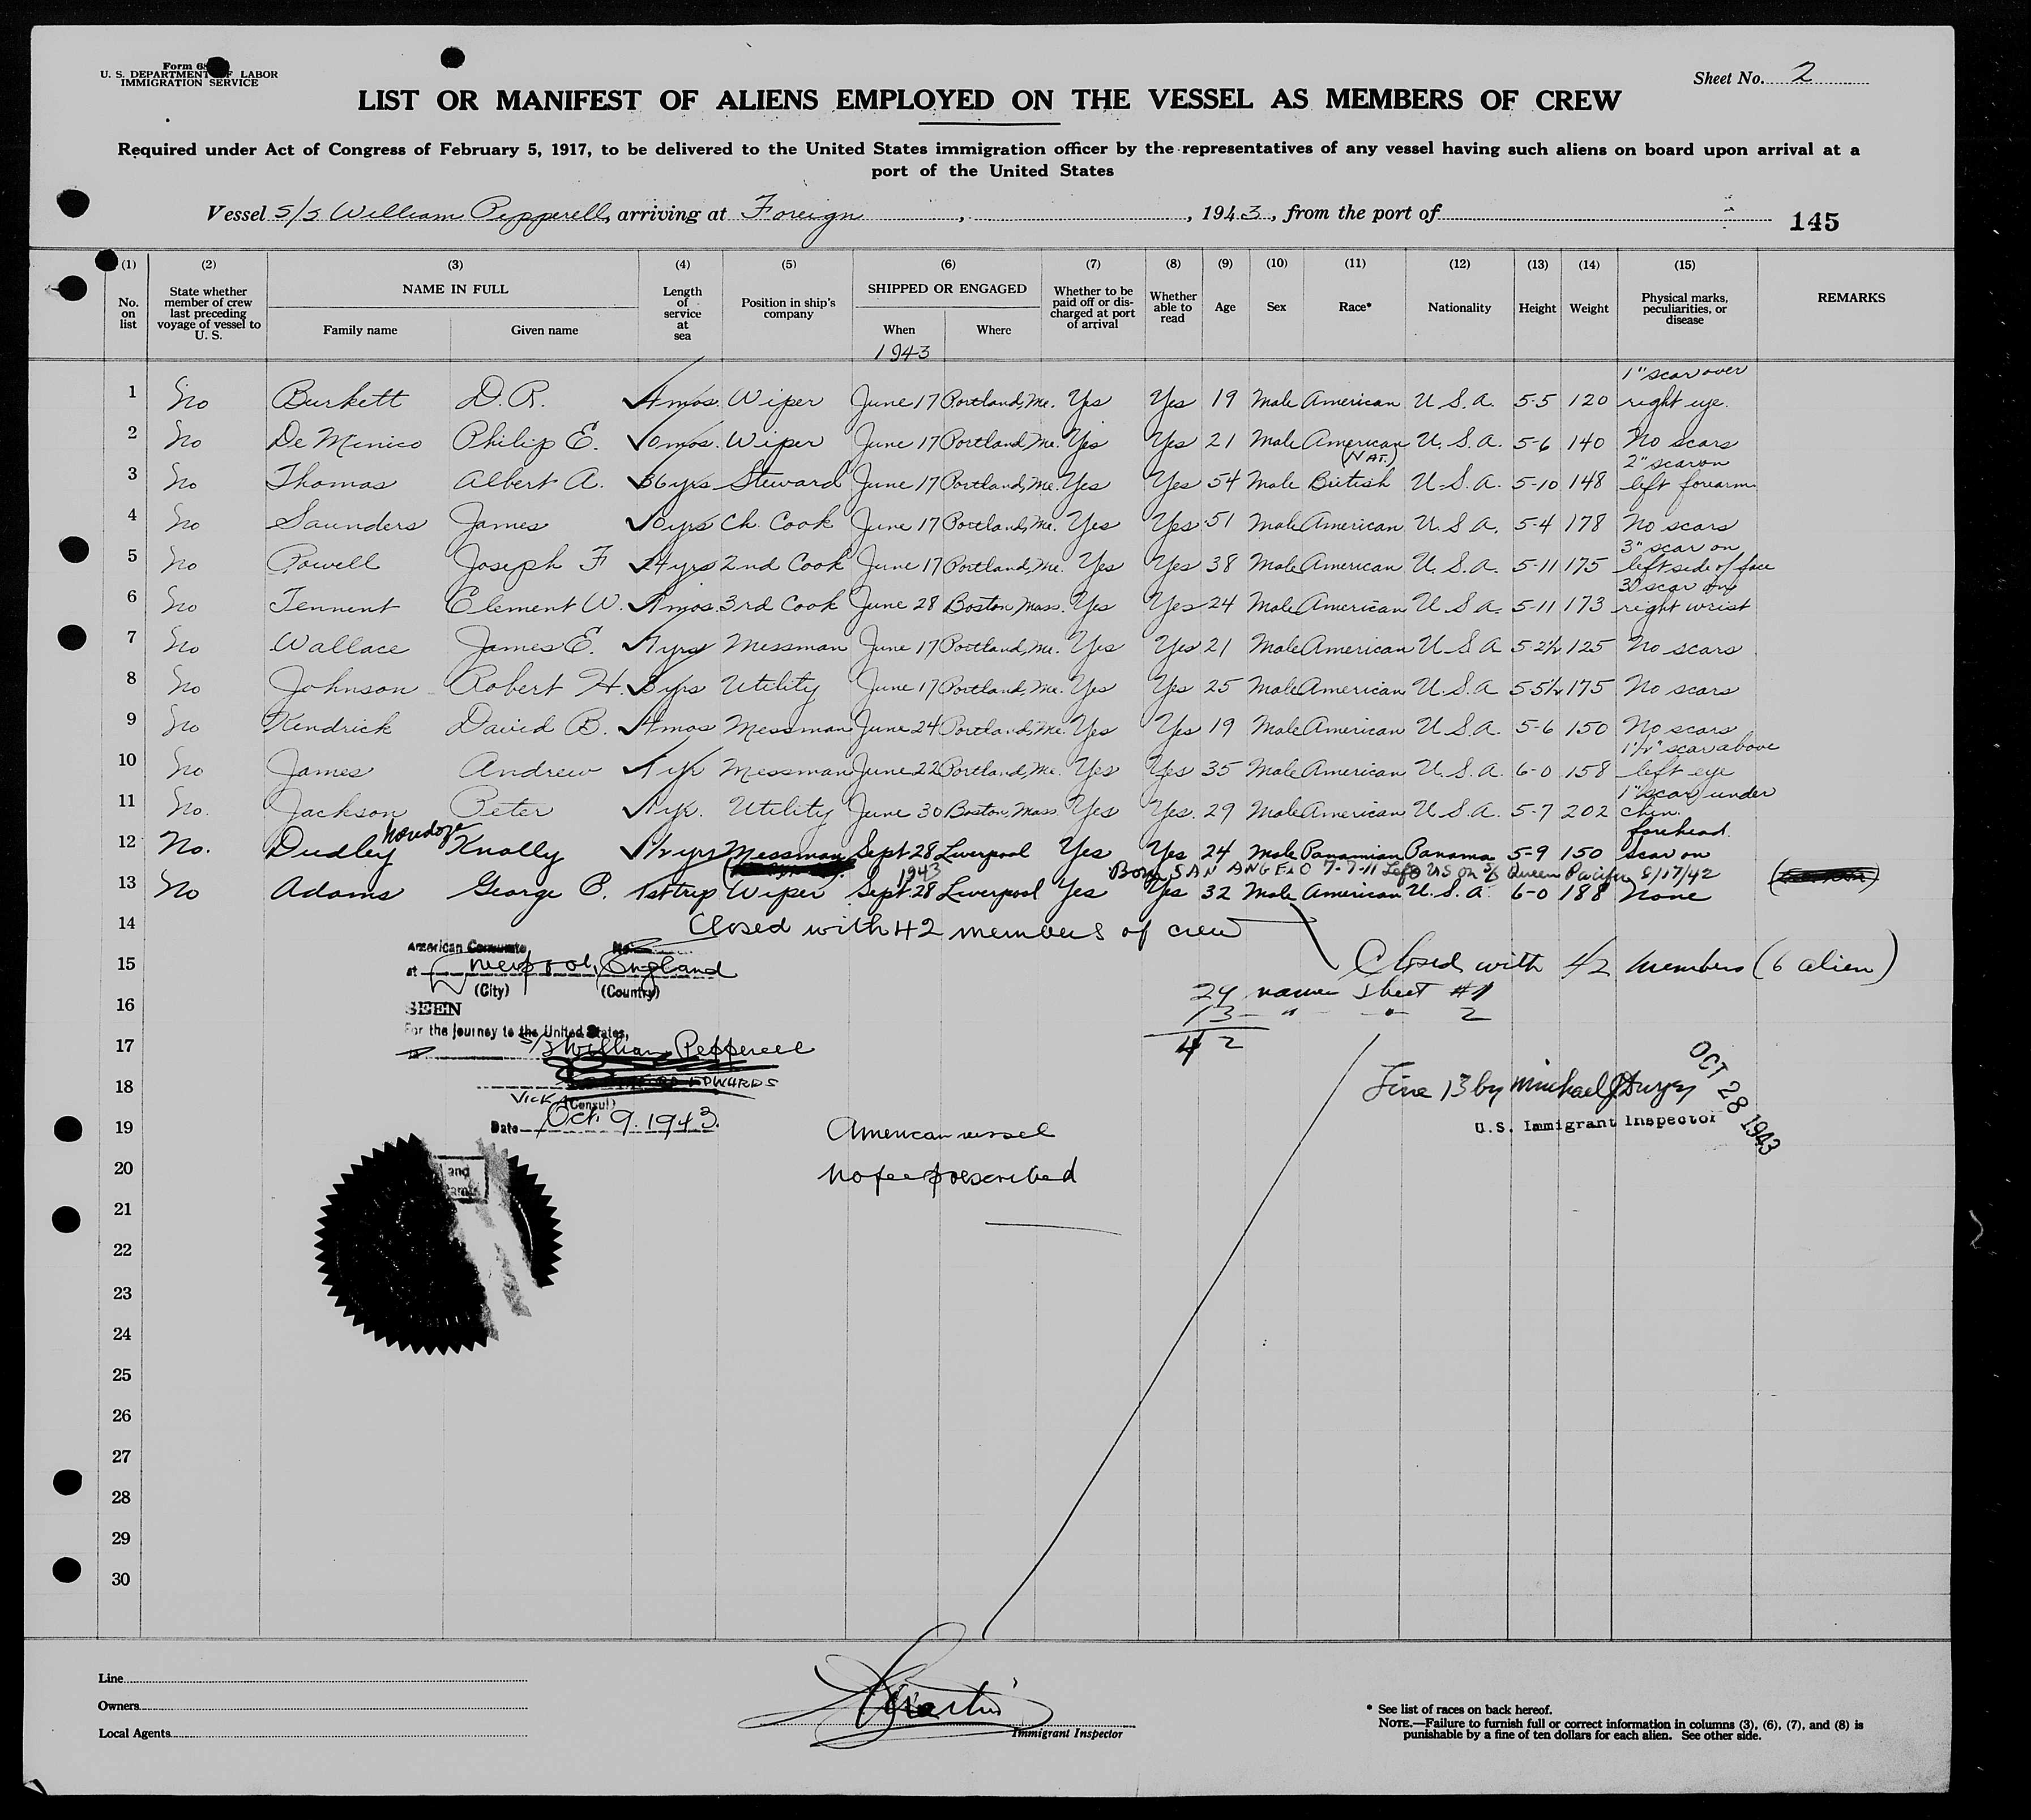 Form 68
U. S. DEPARTMENT OF LABOR
IMMIGRATION SERVICE
Sheet No. 2
LIST OR MANIFEST OF ALIENS EMPLOYED ON THE VESSEL AS MEMBERS OF CREW
Required under Act of Congress of February 5, 1917, to be delivered to the United States immigration officer by the representatives of any vessel having such aliens on board upon arrival at a
port of the United States
Vessel S/S William Pepperell, arriving at Foreign, , 1943, from the port of
145
(1) (2) (3) (4) (5) (6) (7) (8) (9) (10) (11) (12) (13) (14) (15)
No. on list State whether member of crew last preceding voyage of vessel to U. S. NAME IN FULL Family name Given name Length of service at sea Position in ship's company SHIPPED OR ENGAGED When Where Whether to be paid off or discharged at port of arrival Whether able to read Age Sex Race* Nationality Height Weight Physical marks, peculiarities, or disease REMARKS
1943
1 No Burkett D. R. 4mos. Wiper June 17 Portland, Me. Yes Yes 19 Male American U.S.A. 5-5 120 1" scar over right eye.
2 No De Minico Philip E. mos. Wiper June 17 Portland, Me. Yes Yes 21 Male American U.S.A. 5-6 140 No scars
3 No Thomas Albert A. 36 yrs Steward June 17 Portland, Me. Yes Yes 54 Male (NAT.) British U.S.A. 5-10 148 2" scar on left forearm
4 No Saunders James yrs Ch. Cook June 17 Portland, Me. Yes Yes 51 Male American U.S.A. 5-4 178 No scars
5 No Powell Joseph F 24 yrs 2nd Cook June 17 Portland, Me. Yes Yes 38 Male American U.S.A. 5-11 175 3" scar on left side of face
6 No Tennent Clement W. mos. 3rd Cook June 28 Boston, Mass. Yes Yes 24 Male American U.S.A. 5-11 173 3" scar on right wrist
7 No Wallace James E. yrs Messman June 17 Portland, Me. Yes Yes 21 Male American U.S.A 5-2½ 125 No scars
8 No Johnson Robert H. 3 yrs Utility June 17 Portland, Me. Yes Yes 25 Male American U.S.A 5-5½ 175 No scars
9 No Kendrick David B. 4mos Messman June 24 Portland, Me. Yes Yes 19 Male American U.S.A. 5-6 150 No scars
10 No James Andrew 1 yr Messman June 22 Portland, Me. Yes Yes 35 Male American U.S.A. 6-0 158 1½" scar above left eye
11 No. Jackson Peter 1 yr. Utility June 30 Boston, Mass. Yes Yes. 29 Male American U.S.A. 5-7 202 1" scar under chin.
12 No. Dudley Knolly 1½ yrs Messman Sept 28 Liverpool Yes Yes 24 Male Panamian Panama 5-9 150 forehead. scar on
1943 Born SAN ANGELO 7-7-11 Left US on S/S Queen Pacific 8/17/42
13 No Adams George P. 1st trip Wiper Sept 28 Liverpool Yes Yes 32 Male American U.S.A. 6-0 188 None
14 Closed with 42 members of crew
American Consulate,
15 at Liverpool, England
Closed with 42 members (6 alien)
(City) (Country)
29 names sheet #1
16 SEEN
13 " " 2
For the journey to the United States,
42
17 S/S William Pepperell
18 EDWARDS
Fine 13 by Michael J Dwyer
OCT 28 1943
Vice (Consul)
U.S. Immigrant Inspector
19 Date Oct. 9. 1943.
American vessel
20 No fee prescribed
21
22
23
24
25
26
27
28
29
30
Line
Owners
Local Agents
Martin
Immigrant Inspector
* See list of races on back hereof.
NOTE.—Failure to furnish full or correct information in columns (3), (6), (7), and (8) is
punishable by a fine of ten dollars for each alien. See other side.